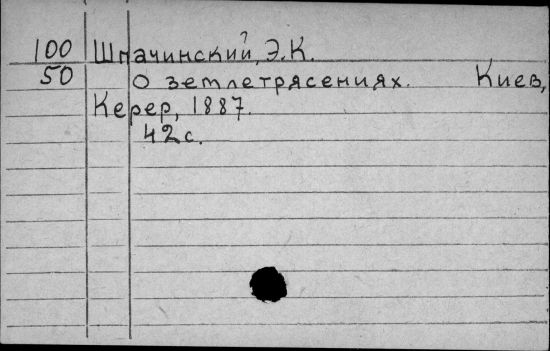 100 Шпачинский, Э.К.
50 О землетрясениях. Киев,
Керер, 1887.
42 с.